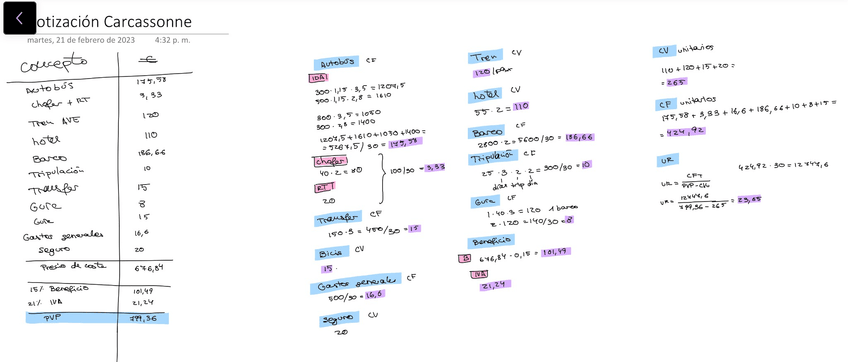 otización Carcassonne
martes, 21 de febrero de 2023 4:32 p. m.
concepto €
Autobús 175,58
chofer + RT 3,33
Tren AVE 120
hotel 110
Barco 186,66
Tripulación 10
Transfer 15
Guía 8
15
Gastos generales 16,6
Seguro 20
Precio de coste 676,84
15% Beneficio 101,49
21% IVA 21,24
PVP 799,36
Autobús CF
IDA
300·1,15·3,5 = 1207,5
500·1,15·2,8 = 1610
300·3,5 = 1050
= 175,58
chofer
40·2 = 80
RT
20
100/30 = 3,33
Transfer CF
150·3 = 450/30 = 15
Bicis CV
15.
Gastos generales CF
500/30 = 16,6
Seguro CV
20
Tren CV
120/pax
hotel CV
55·2 = 110
Barco CF
2800·2 = 5600/30 = 186,66
Tripulación CF
25·3·2·2 = 300/30 = 10
días trip día
Guía CF
1·40·3 = 120 1 barco
2·120 = 240/30 = 8
Beneficio
B 676,84·0,15 = 101,49
IVA
21,24
CV unitarios
110+120+15+20=
=265
CF unitarios
175,58 + 3,33 + 16,6 + 186,66 + 10 + 8 + 15 =
= 424,92
UR
424,92·30 = 12747,6
UR = CFT / PVP - CVu
UR = 12747,6 / 799,36 - 265 = 23,85